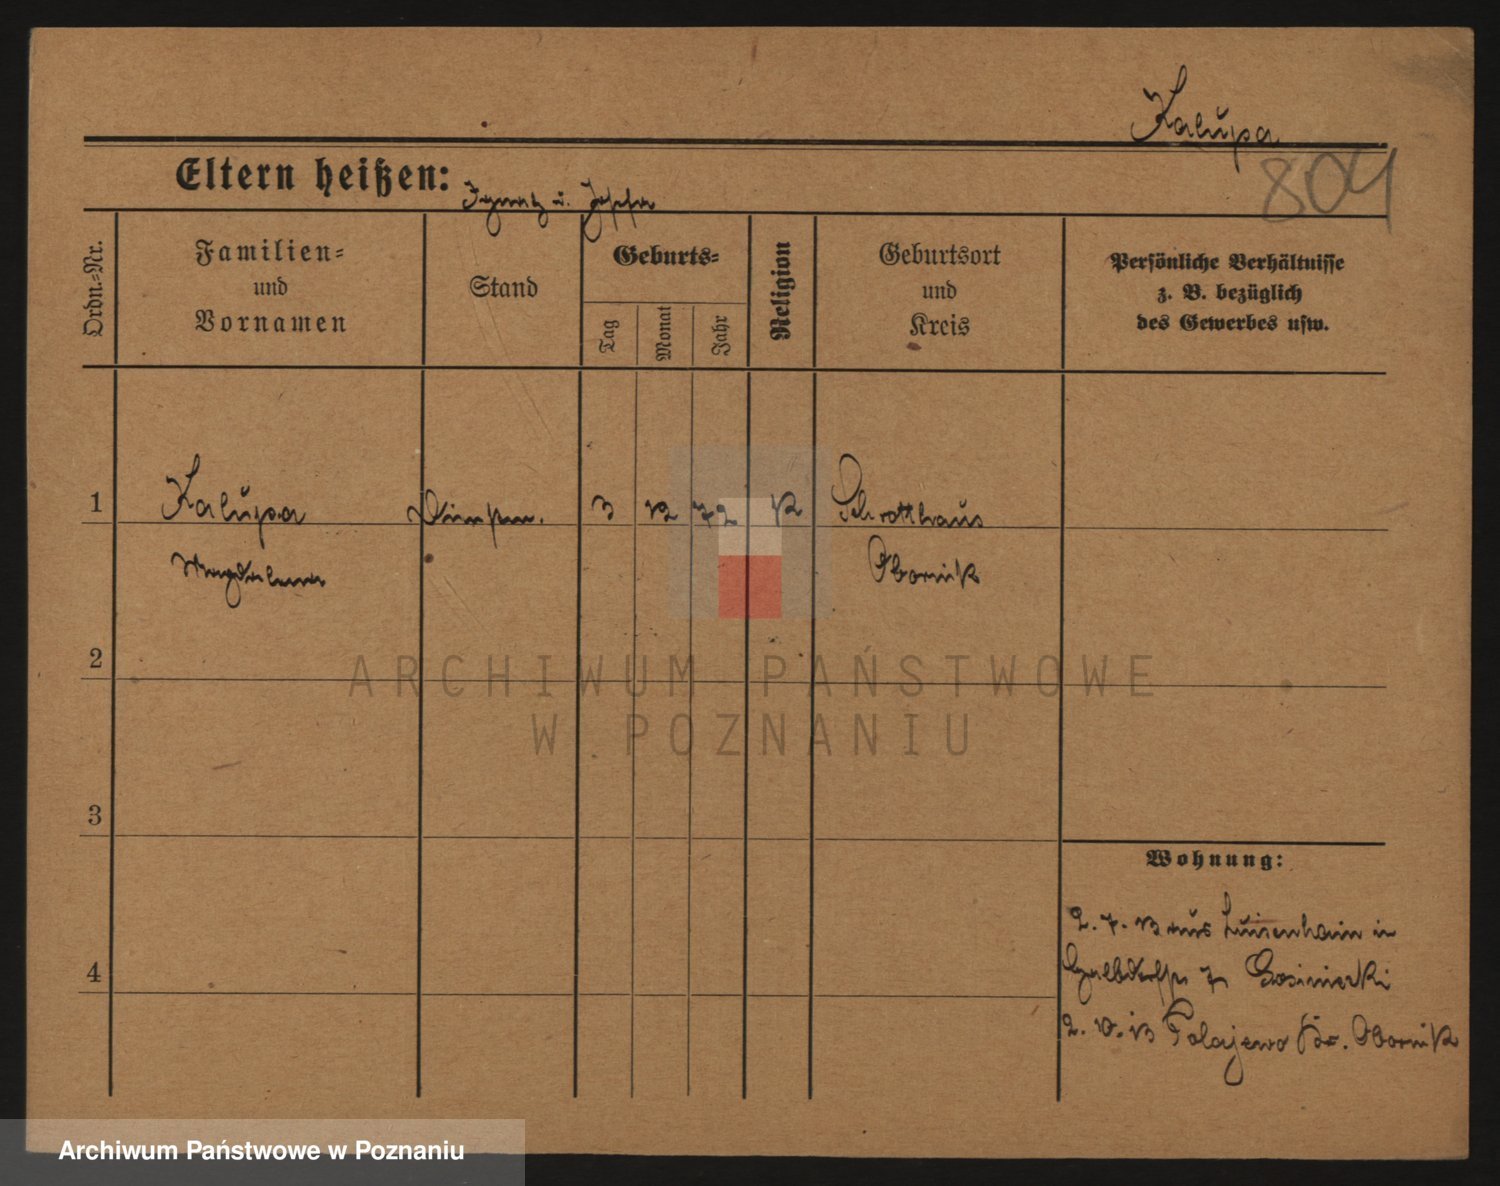 Kalupa
804
Eltern heißen: Ignatz u. Josefa
Ordn.-Nr.
Familien-
und
Vornamen
Stand
Geburts-
Tag
Monat
Jahr
Religion
Geburtsort
und
Kreis
Persönliche Verhältnisse
z. B. bezüglich
des Gewerbes usw.
1 Kalupa 3 12 72 K Schrotthaus
Magdalena Obornik
2
ARCHIWUM PAŃSTWOWE
W POZNANIU
3
Wohnung:
2. 7. 13 aus Luisenhain in
4
2. 10. 13 Polajewo Kr. Obornik
Archiwum Państwowe w Poznaniu